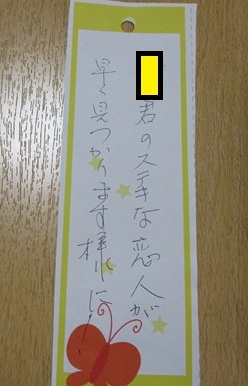 君のステキな恋人が
早く見つかります様に!